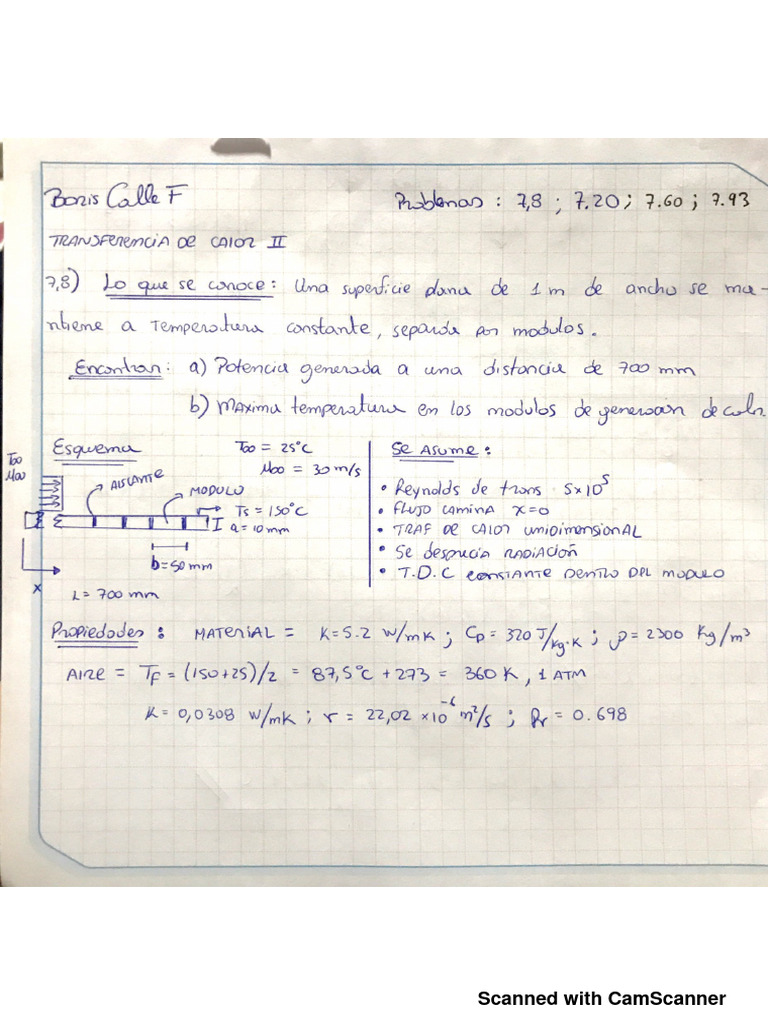 Boris Calle F
Problemas : 7,8 ; 7.20 ; 7.60 ; 7.93
TRANSFERENCIA DE CALOR II
7,8) Lo que se conoce: Una superficie plana de 1m de ancho se ma-
ntiene a Temperatura constante, separada por modulos.
Encontrar: a) Potencia generada a una distancia de 700 mm
b) Maxima temperatura en los modulos de generación de calor.
Esquema
T∞ = 25°C
μ∞ = 30 m/s
T∞
μ∞
AISLANTE
MODULO
Ts = 150°C
a = 10mm
b = 50 mm
x
L = 700 mm
Se Asume:
• Reynolds de trans 5x10⁵
• Flujo lamina x=0
• TRAF DE CALOR UNIDIMENSIONAL
• Se desprecia RADIACIÓN
• T.D.C CONSTANTE DENTRO DEL MODULO
Propiedades : MATERIAL = K=5.2 W/mK ; Cp = 320 J/kg·K ; ρ = 2300 Kg/m³
AIRE = TF = (150+25)/2 = 87,5°C + 273 = 360 K, 1 ATM
K = 0,0308 W/mK ; r = 22,02 x10⁻⁶ m²/s ; Pr = 0.698
Scanned with CamScanner